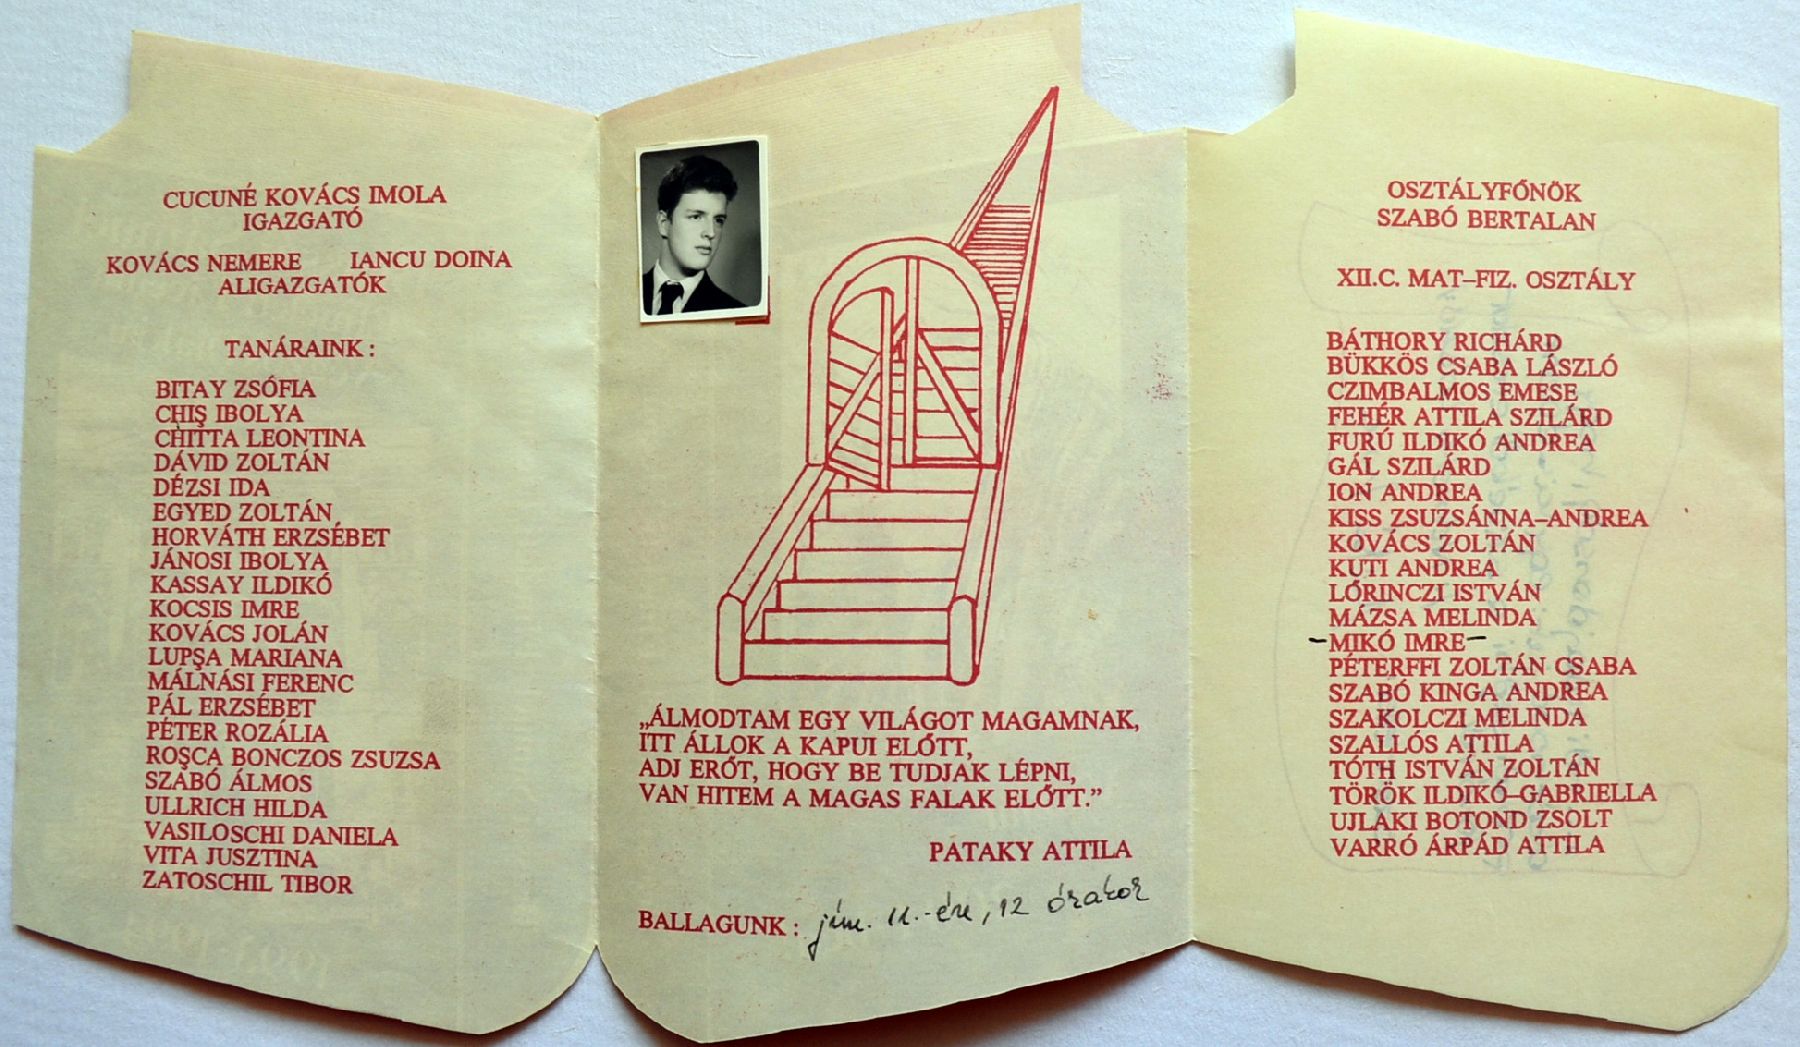 CUCUNÉ KOVÁCS IMOLA
IGAZGATÓ
KOVÁCS NEMERE IANCU DOINA
ALIGAZGATÓK
TANÁRAINK :
BITAY ZSÓFIA
CHIŞ IBOLYA
CHITTA LEONTINA
DÁVID ZOLTÁN
DÉZSI IDA
EGYED ZOLTÁN
HORVÁTH ERZSÉBET
JÁNOSI IBOLYA
KASSAY ILDIKÓ
KOCSIS IMRE
KOVÁCS JOLÁN
LUPŞA MARIANA
MÁLNÁSI FERENC
PÁL ERZSÉBET
PÉTER ROZÁLIA
ROŞCA BONCZOS ZSUZSA
SZABÓ ÁLMOS
ULLRICH HILDA
VASILOSCHI DANIELA
VITA JUSZTINA
ZATOSCHIL TIBOR
„ÁLMODTAM EGY VILÁGOT MAGAMNAK,
ITT ÁLLOK A KAPUI ELŐTT,
ADJ ERŐT, HOGY BE TUDJAK LÉPNI,
VAN HITEM A MAGAS FALAK ELŐTT.”
PATAKY ATTILA
BALLAGUNK : jún. 11.-én, 12 órakor
OSZTÁLYFŐNÖK
SZABÓ BERTALAN
XII.C. MAT–FIZ. OSZTÁLY
BÁTHORY RICHÁRD
BÜKKÖS CSABA LÁSZLÓ
CZIMBALMOS EMESE
FEHÉR ATTILA SZILÁRD
FURÚ ILDIKÓ ANDREA
GÁL SZILÁRD
ION ANDREA
KISS ZSUZSÁNNA–ANDREA
KOVÁCS ZOLTÁN
KUTI ANDREA
LŐRINCZI ISTVÁN
MÁZSA MELINDA
–MIKÓ IMRE–
PÉTERFFI ZOLTÁN CSABA
SZABÓ KINGA ANDREA
SZAKOLCZI MELINDA
SZALLÓS ATTILA
TÓTH ISTVÁN ZOLTÁN
TÖRÖK ILDIKÓ–GABRIELLA
UJLAKI BOTOND ZSOLT
VARRÓ ÁRPÁD ATTILA